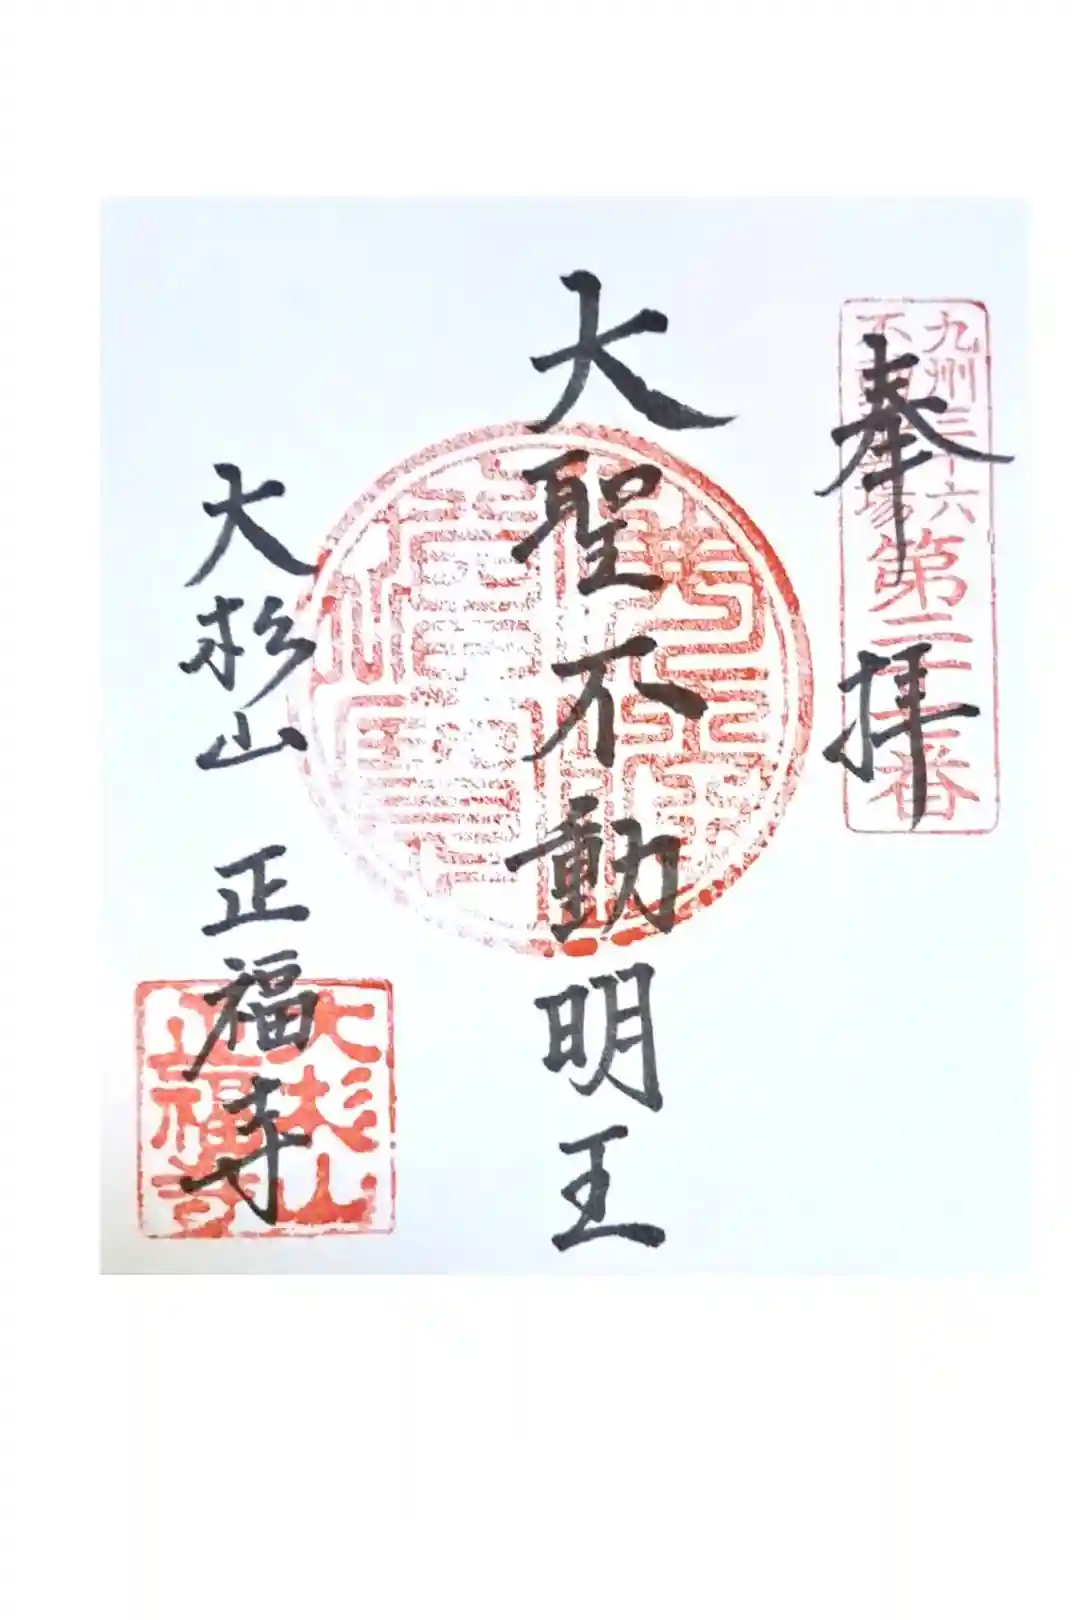 奉拝
九州三十六
不動霊場
第二
番
大聖不動明王
大杉山 正福寺
大杉山
正福寺